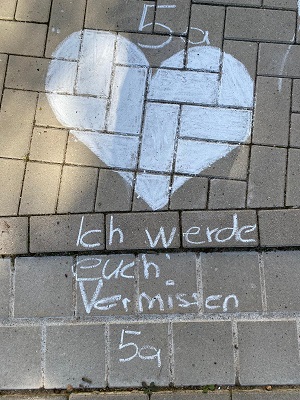 5a
Ich werde
euch
Vermissen
5a